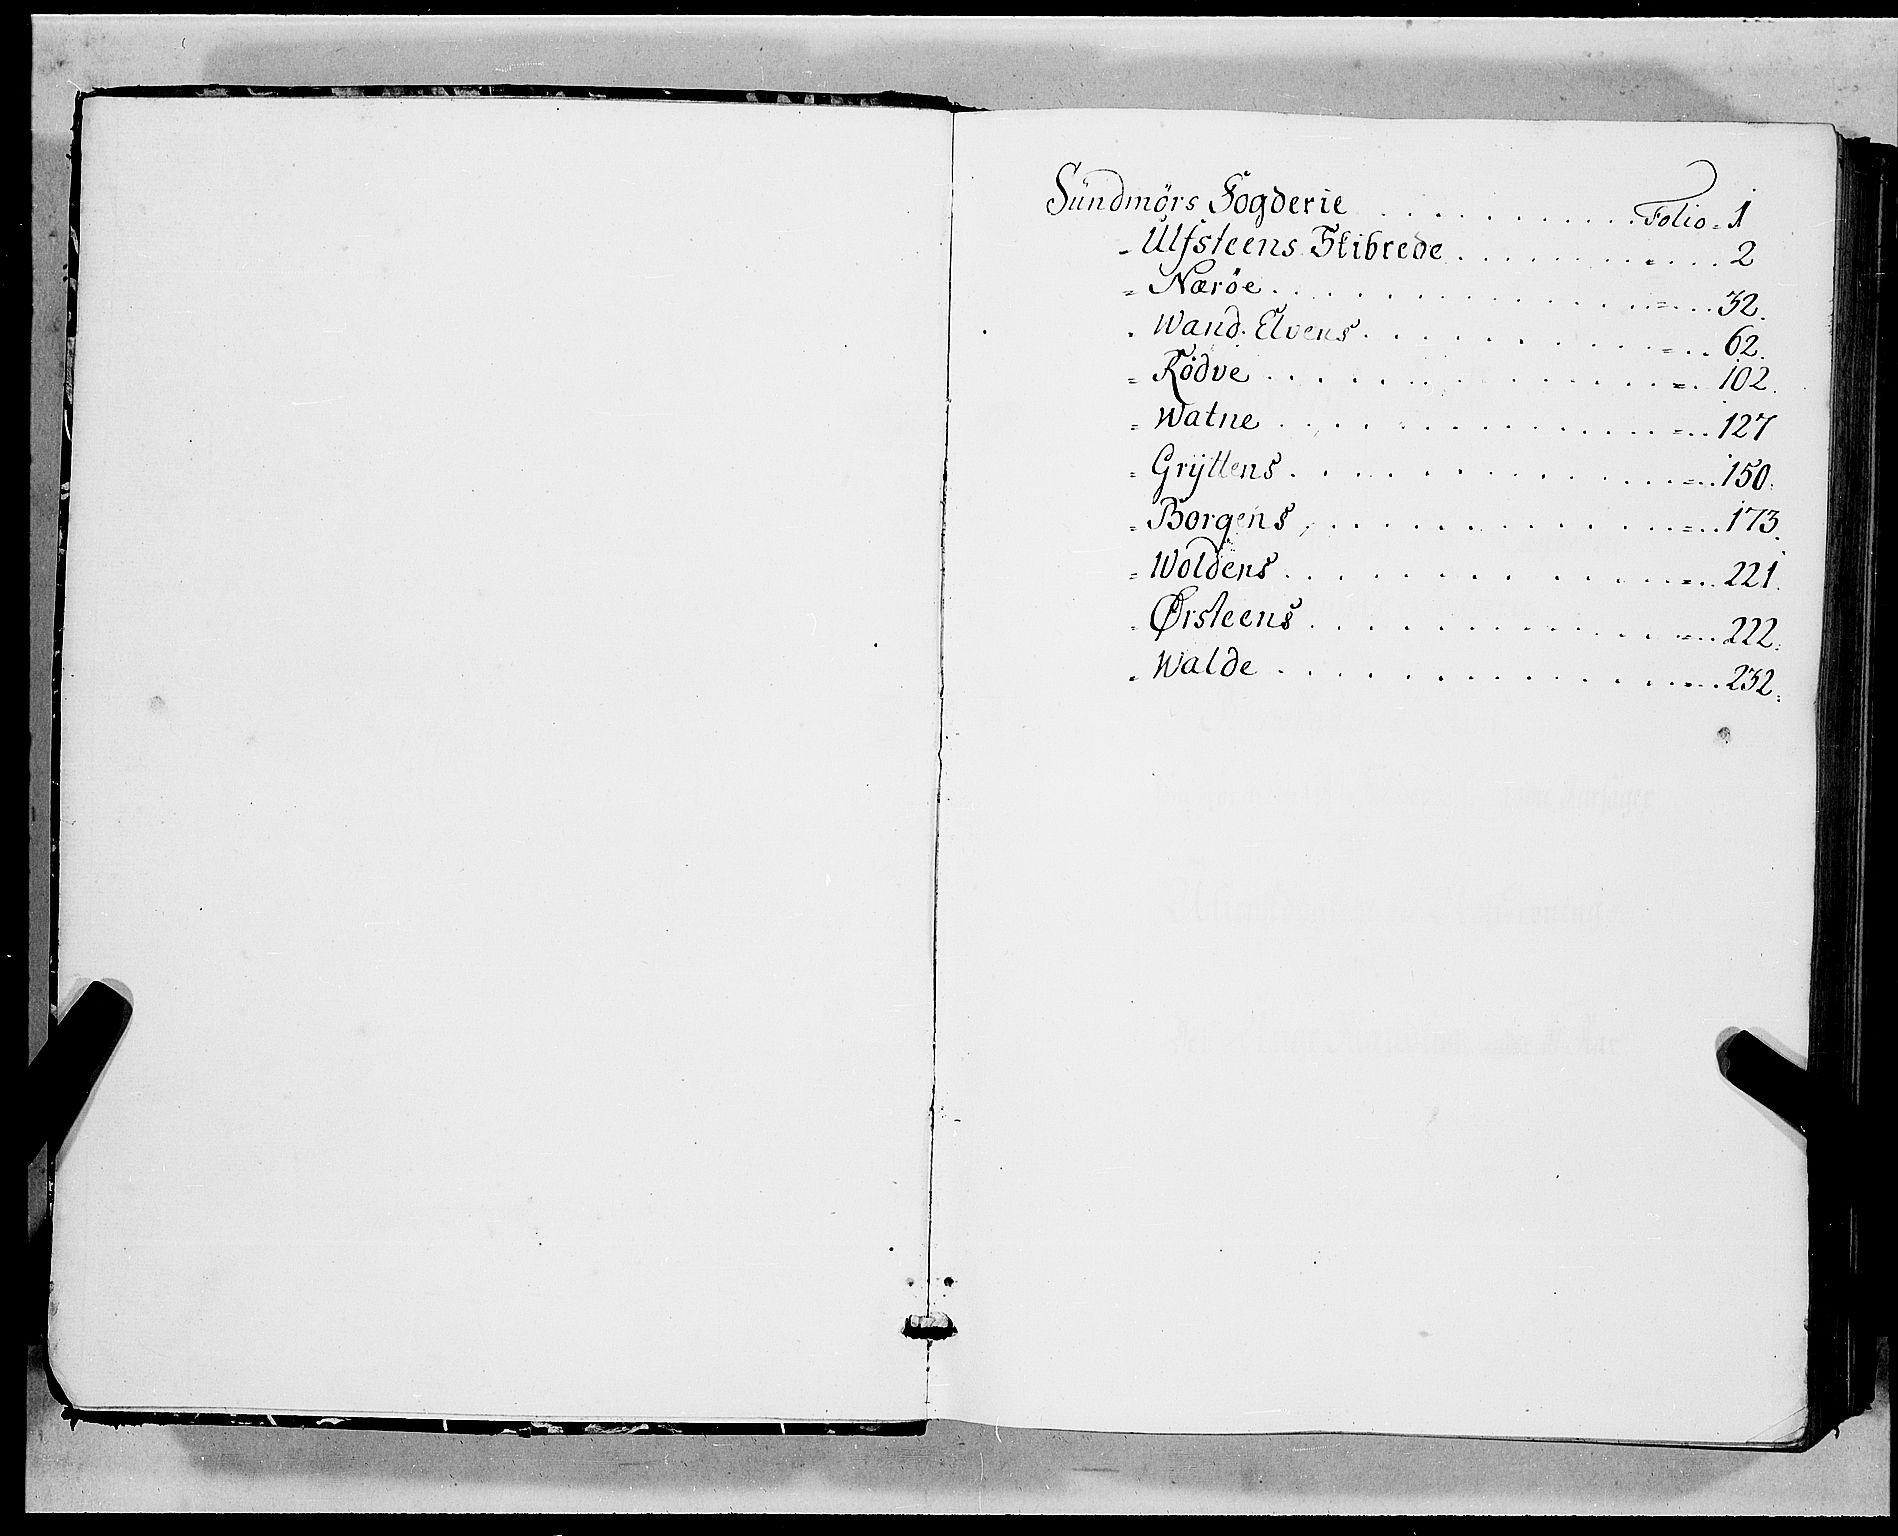 Sündmörs Fogderie . . . . . . . . . . Folio = 1
= Ulfsteens Skibrede . . . . . . . = . . . 2
= Nærøe . . . . . . . . . . . . . = . . . 32.
= Wand. Elvens . . . . . . . . . . = . . 62.
= Rödve . . . . . . . . . . . . . = . 102.
= Watne . . . . . . . . . . . . . = . . 127
= Grÿttens . . . . . . . . . . . . = . . 150.
= Borgens . . . . . . . . . . . . = . . 173.
= Woldens . . . . . . . . . . . . = . . 221.
= Ørsteens . . . . . . . . . . . . = . . 222.
= Walde . . . . . . . . . . . . . = . . 232.